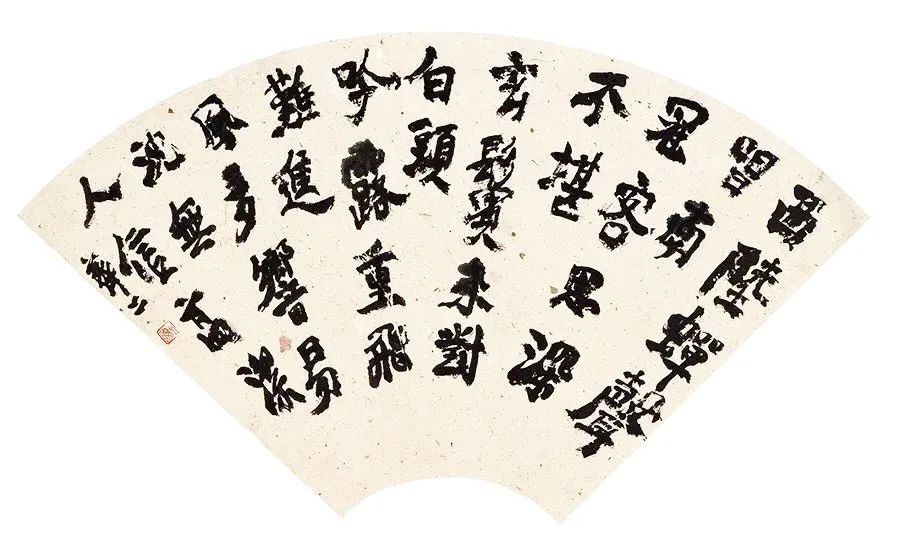 西陸蟬聲
唱南
冠客思深
不堪
玄鬢来對
白頭
吟露重飛
難進
風多響易
沉無
人信高潔